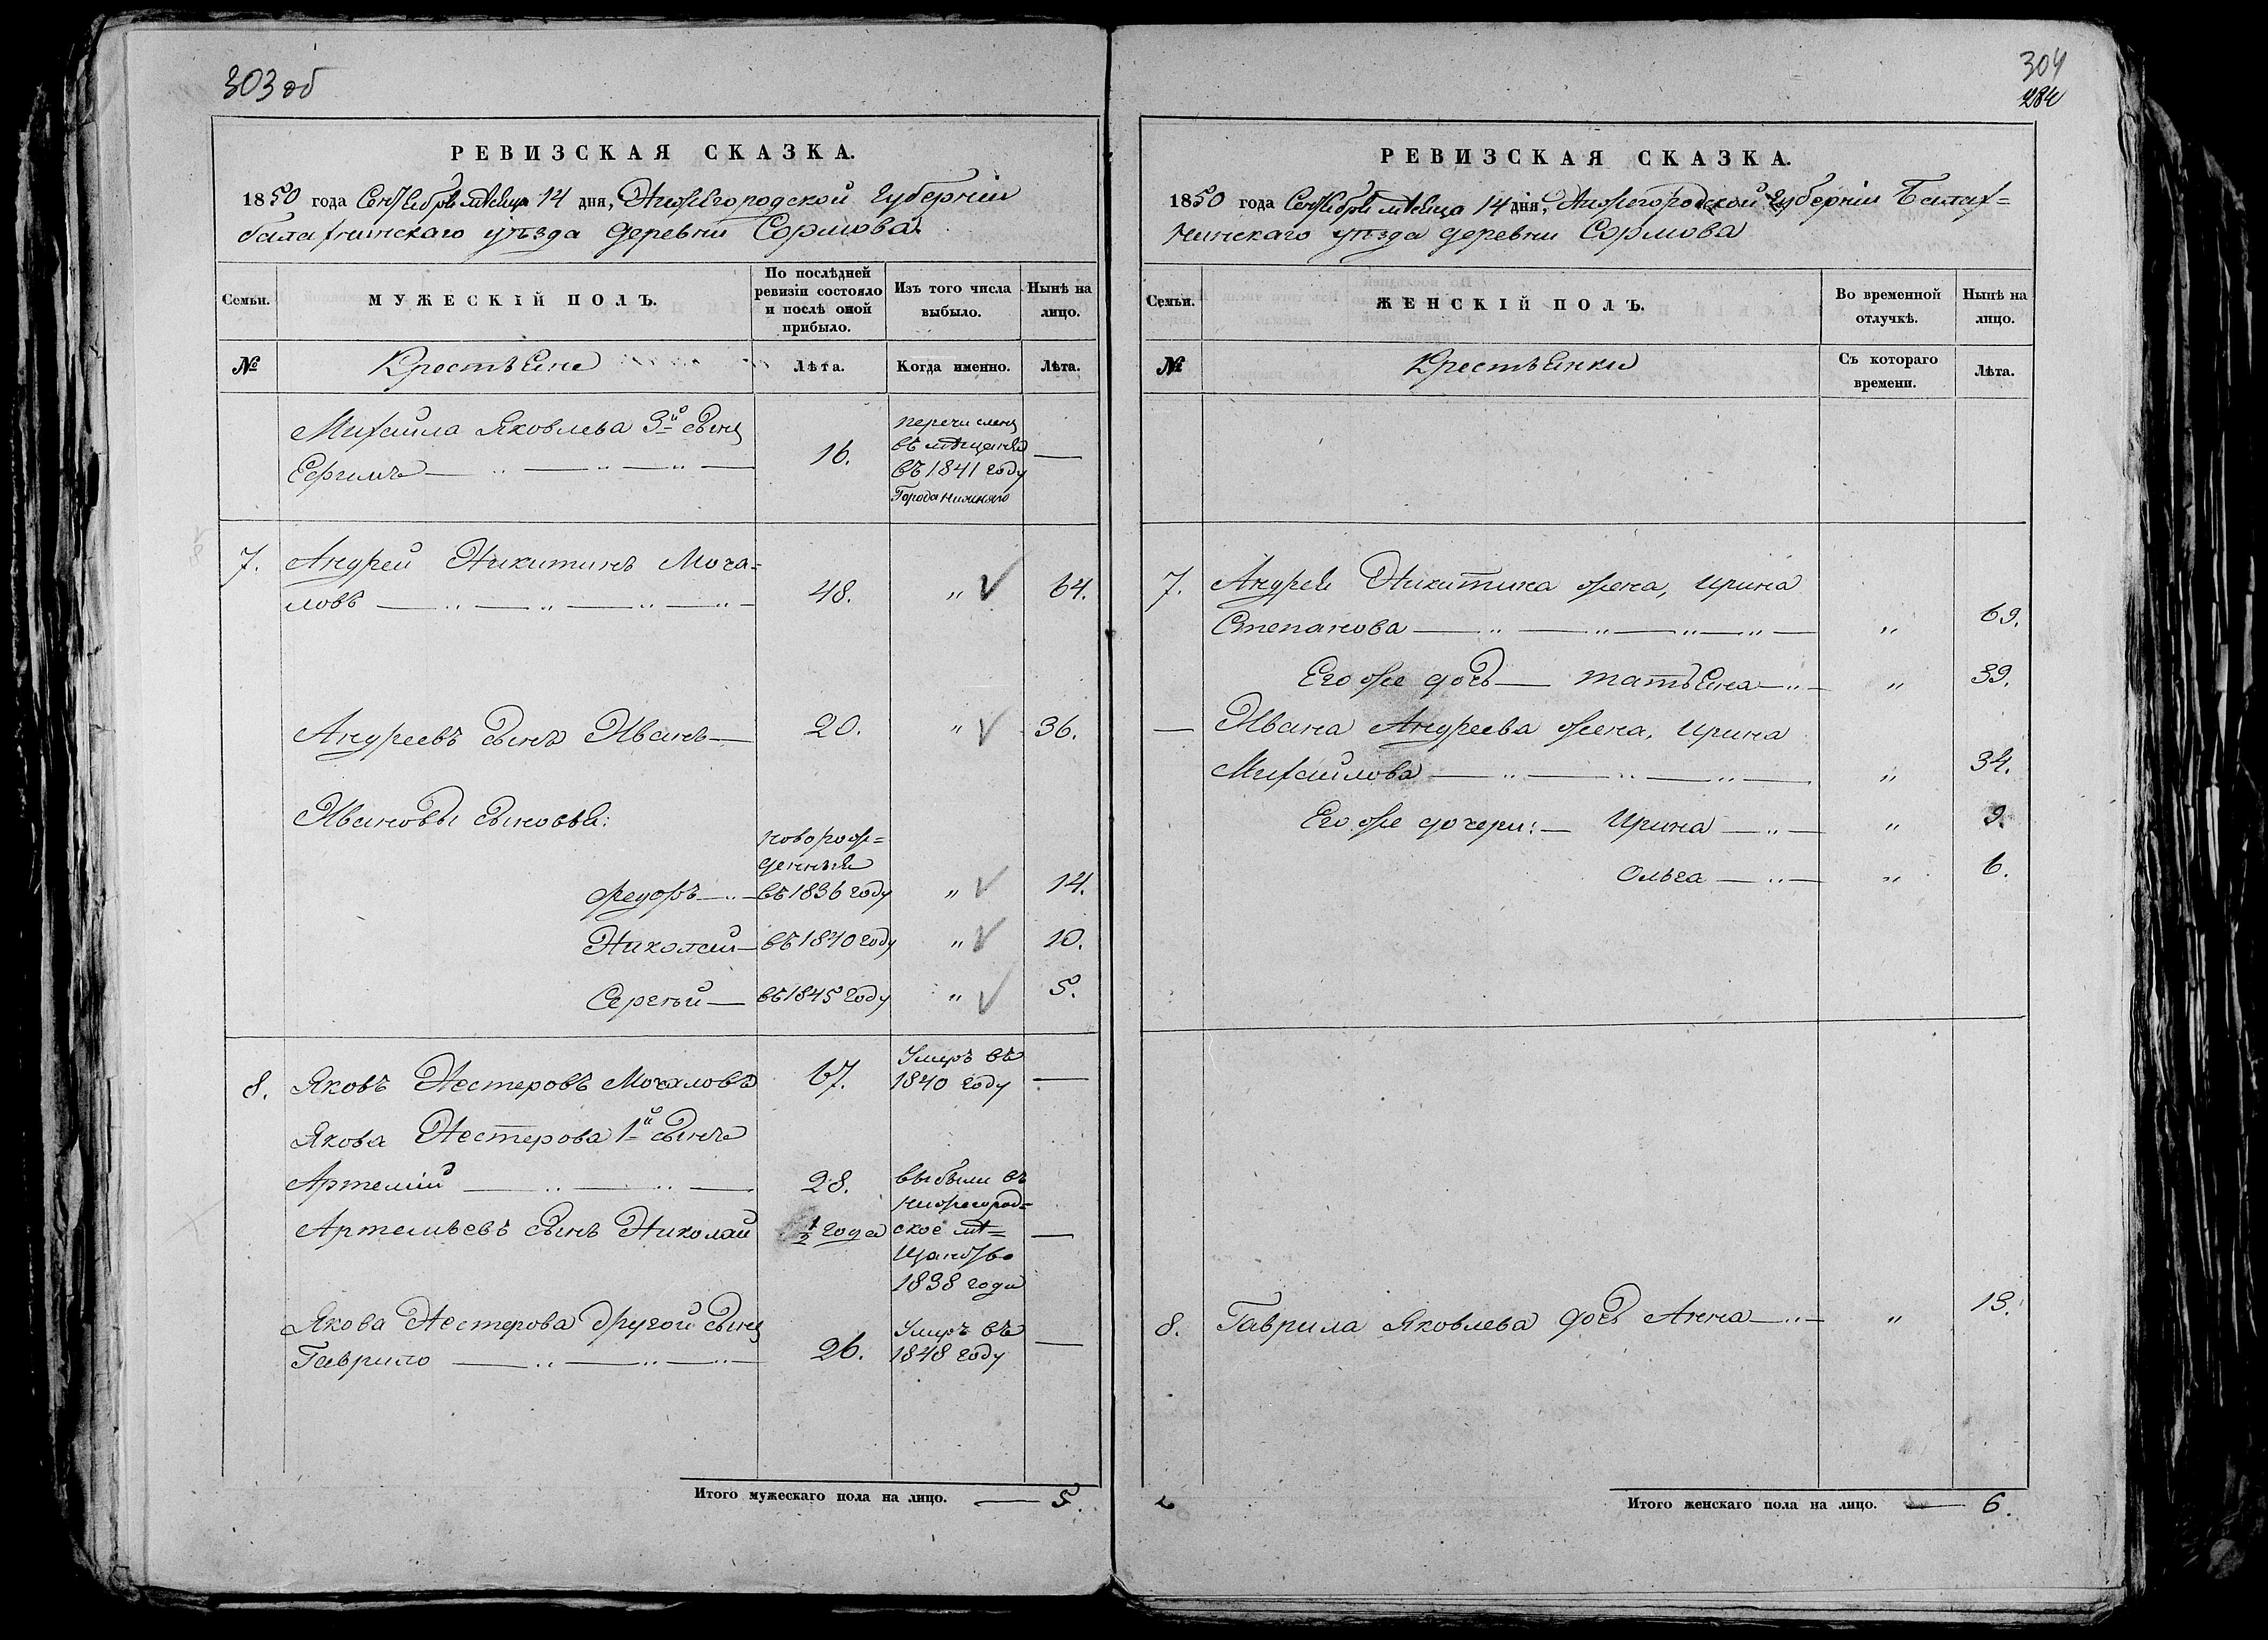 303 об
РЕВИЗСКАЯ СКАЗКА.
1850 года Сентября месяца 14 дня, Нижегородской губернии
балахнинскаго уезда деревни Сормова.
Семьи.
МУЖЕСКІЙ ПОЛЪ.
По послѣдней
ревизіи состояло
и послѣ оной
прибыло.
Изъ того числа
выбыло.
Нынѣ на
лицо.
№
Крестьяне
Лѣта.
Когда именно.
Лѣта.
Михаила Яковлева 3й сынъ
Ефимъ
16.
перечисленъ
въ мѣщане
въ 1841 году
Города нижняго
—
7.
Андрей Никитинъ Моча-
ловъ
48.
"
64.
Андреевъ сынъ Иванъ
20.
"
36.
Ивановы сыновья:
новорож-
денный
Федоръ
въ 1836 году
"
14.
Николай
въ 1840 году
"
10.
Сергѣй
въ 1845 году
"
5.
8.
Яковъ Нестеровъ Мочаловъ
67.
Умеръ въ
1840 году
—
Якова Нестерова 1й сынъ
Артемій
28.
выбыли въ
нижегород-
Артемьевъ сынъ Николай
1/2 года
ское мѣ-
щанство
1838 года
—
Якова Нестерова другой сынъ
Гаврило
26.
Умеръ въ
1848 году
—
Итого мужескаго пола на лицо. — 5.
304
284
РЕВИЗСКАЯ СКАЗКА.
1850 года Сентября месяца 14 дня, Нижегородской губерніи Балах-
нинскаго уѣзда деревни Сормова
Семьи.
ЖЕНСКІЙ ПОЛЪ.
Во временной
отлучкѣ.
Нынѣ на
лицо.
№
Крестьянки
Съ котораго
времени.
Лѣта.
7.
Андрея Никитина жена, Ирина
Степанова
"
69.
Его же дочь — Татьяна
"
39.
— Ивана Андреева жена, Ирина
Михайлова
"
34.
Его же дочери: — Ирина
"
9.
Ольга
"
6.
8.
Гаврила Яковлева дочь Анна
"
13.
Итого женскаго пола на лицо. — 6.